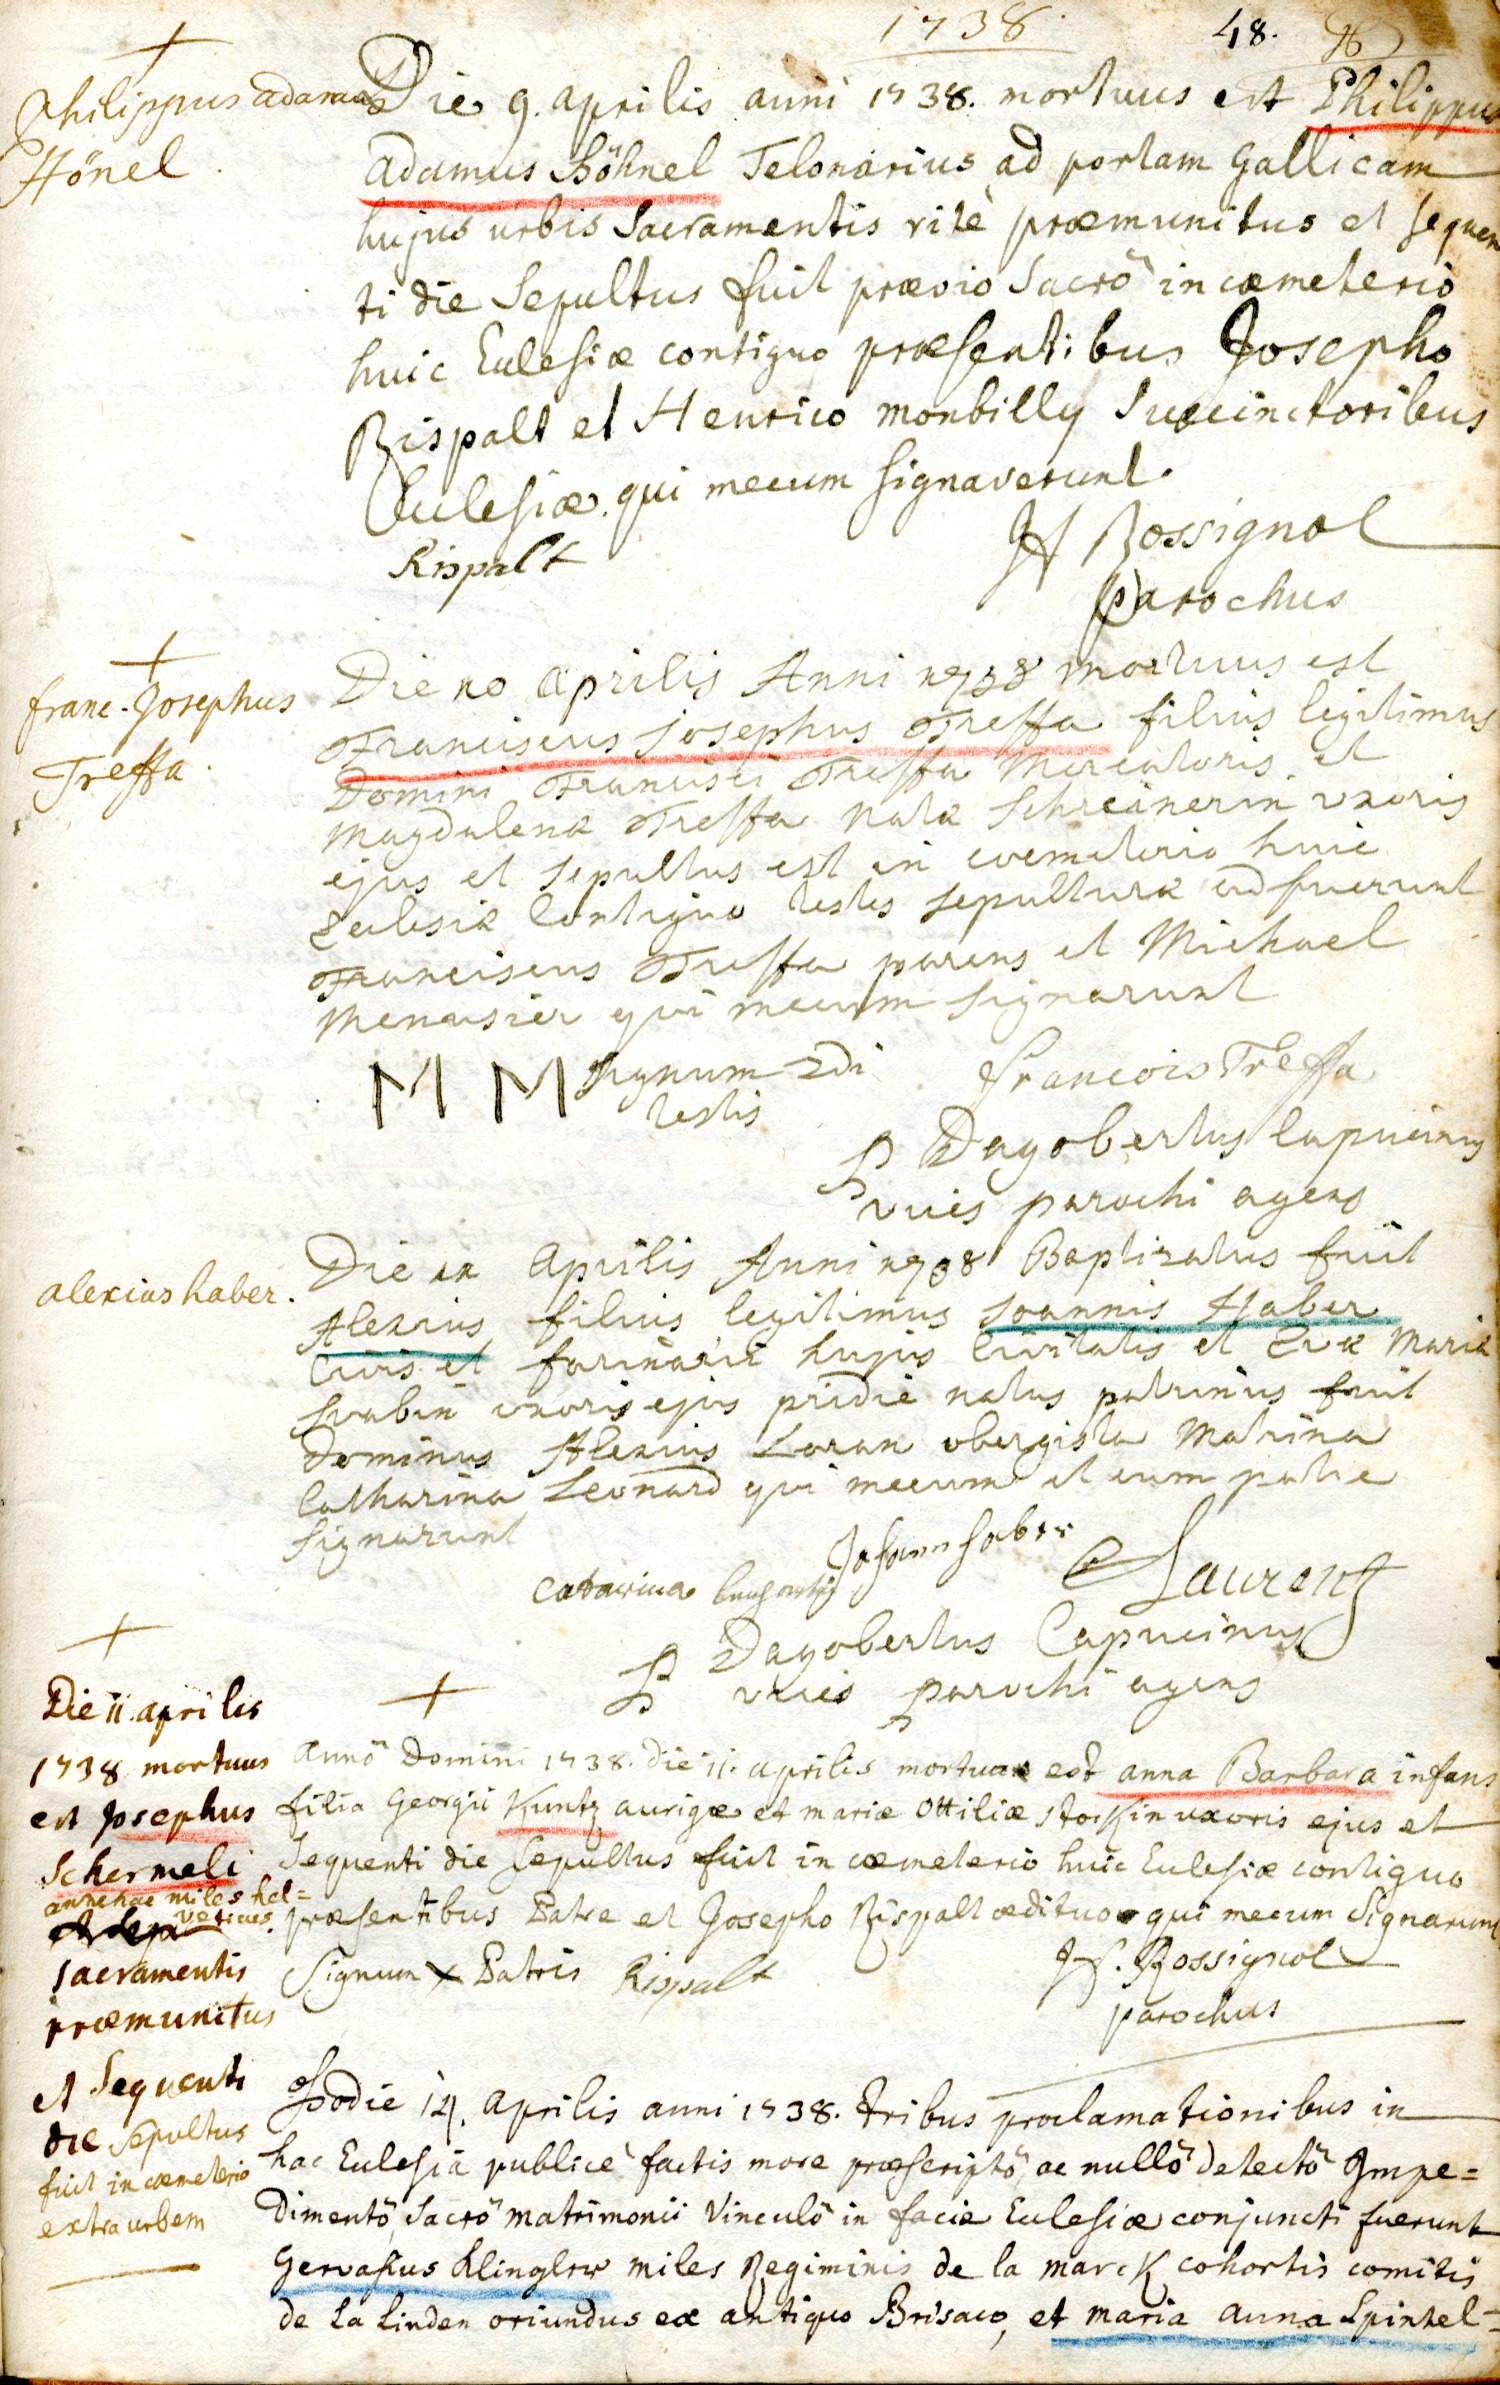 1738 48.
Philippus adamus
Hönel.
Die 9. aprilis anni 1738. mortuus est Philippus
adamus Höhnel Telonarius ad portam Gallicam
hujus urbis Sacramentis ritè præmunitus et sequen
ti die Sepultus fuit prævio Sacrô in cœmeterio
huic Ecclesiæ contiguo præsentibus Josepho
Rispalt et Henrico monbilly Succinctoribus
Ecclesiæ qui mecum signaverunt.
Rispalt
H Rossignol
parochus
franc. Josephus
Treffa.
Die 10 Aprilis Anni 1738 mortuus est
Franciscus Josephus Treffa filius legitimus
Domini Francisci Treffa Mercatoris et
Magdalenæ Treffa natæ Schreinerin uxoris
ejus et sepultus est in coemeterio huic
Eclesiæ Contiguo testes sepulturæ adfuerunt
Franciscus Treffa parens et Michael
Menausier qui mecum signarunt
M M signum 2di
testis
Francois Treffa
P Dagobertus Capucinus
vices parochi agens
alexius haber.
Die 11 Aprilis Anni 1738 Baptizatus fuit
Alexius filius legitimus Joannis Haber
Civis et farinarii hujus Civitatis et Evæ Mariæ
Suabin uxoris ejus pridie natus patrinus fuit
Dominus Alexius Loran obergista Matrina
Catharina Leonard qui mecum et cum patre
signarunt
Johann haber
Catarina
Laurent
P Dagobertus Capucinus
vices parochi agens
Die 11. aprilis
1738 mortuus
est Josephus
Schermeli
antehac miles hel=
veticus.
sacramentis
præmunitus
et Sequenti
die Sepultus
fuit in cœmeterio
extra urbem
annô Domini 1738. die 11. aprilis mortua est anna Barbara infans
filia Georgii Kuntz aurigæ et mariæ Ottiliæ Stockin uxoris ejus et
Sequenti die Sepultus fuit in cœmeterio huic Ecclesiæ contiguo
præsentibus Patre et Josepho Rispalt ædituo qui mecum Signarunt
Signum x Patris Rispalt
H. Rossignol
parochus
Hodie 14. aprilis anni 1738. tribus proclamationibus in
hac Ecclesiâ publicè factis more præscriptô, ac nullô detectô Impe=
dimentô, Sacrô matrimonii Vinculô in facie Ecclesiæ conjuncti fuerunt
Gervasius Klingler miles Regiminis de la marck cohortis comitis
de La Linden oriundus ex antiquo Brisaco, et maria anna Spinhel=